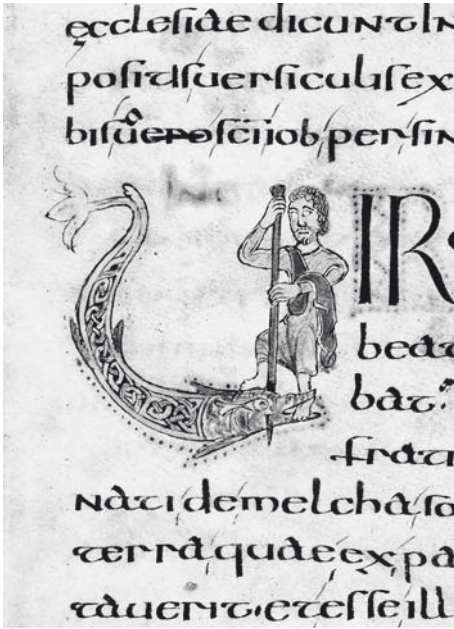 ęcclesiae dicunt in
positis uersiculis ex
bis uero sc̄i iob per sin
UIR
beat
bat
frat
nati de melcha so
terra quae expa
tauerit et esse ill